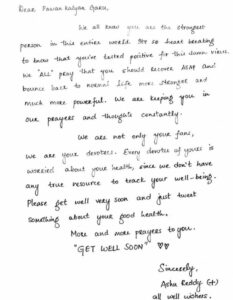 Dear Pawan kalyan garu,
We all know you are the strongest
person in this entire world. It's so heart breaking
to know that you've tested positive for this damn virus.
We 'ALL' pray that you should recover ASAP and
bounce back to normal life more stronger and
much more powerful. We are keeping you in
our prayers and thoughts constantly.
We are not only your fans,
We are your devotees. Every devotee of yours is
worried about your health, since we don't have
any true resource to track your well-being.
Please get well very soon and just tweet
something about your good health.
More and more prayers to you.
"GET WELL SOON" ♡♡
Sincerely,
Ashu Reddy (+)
all well wishers.